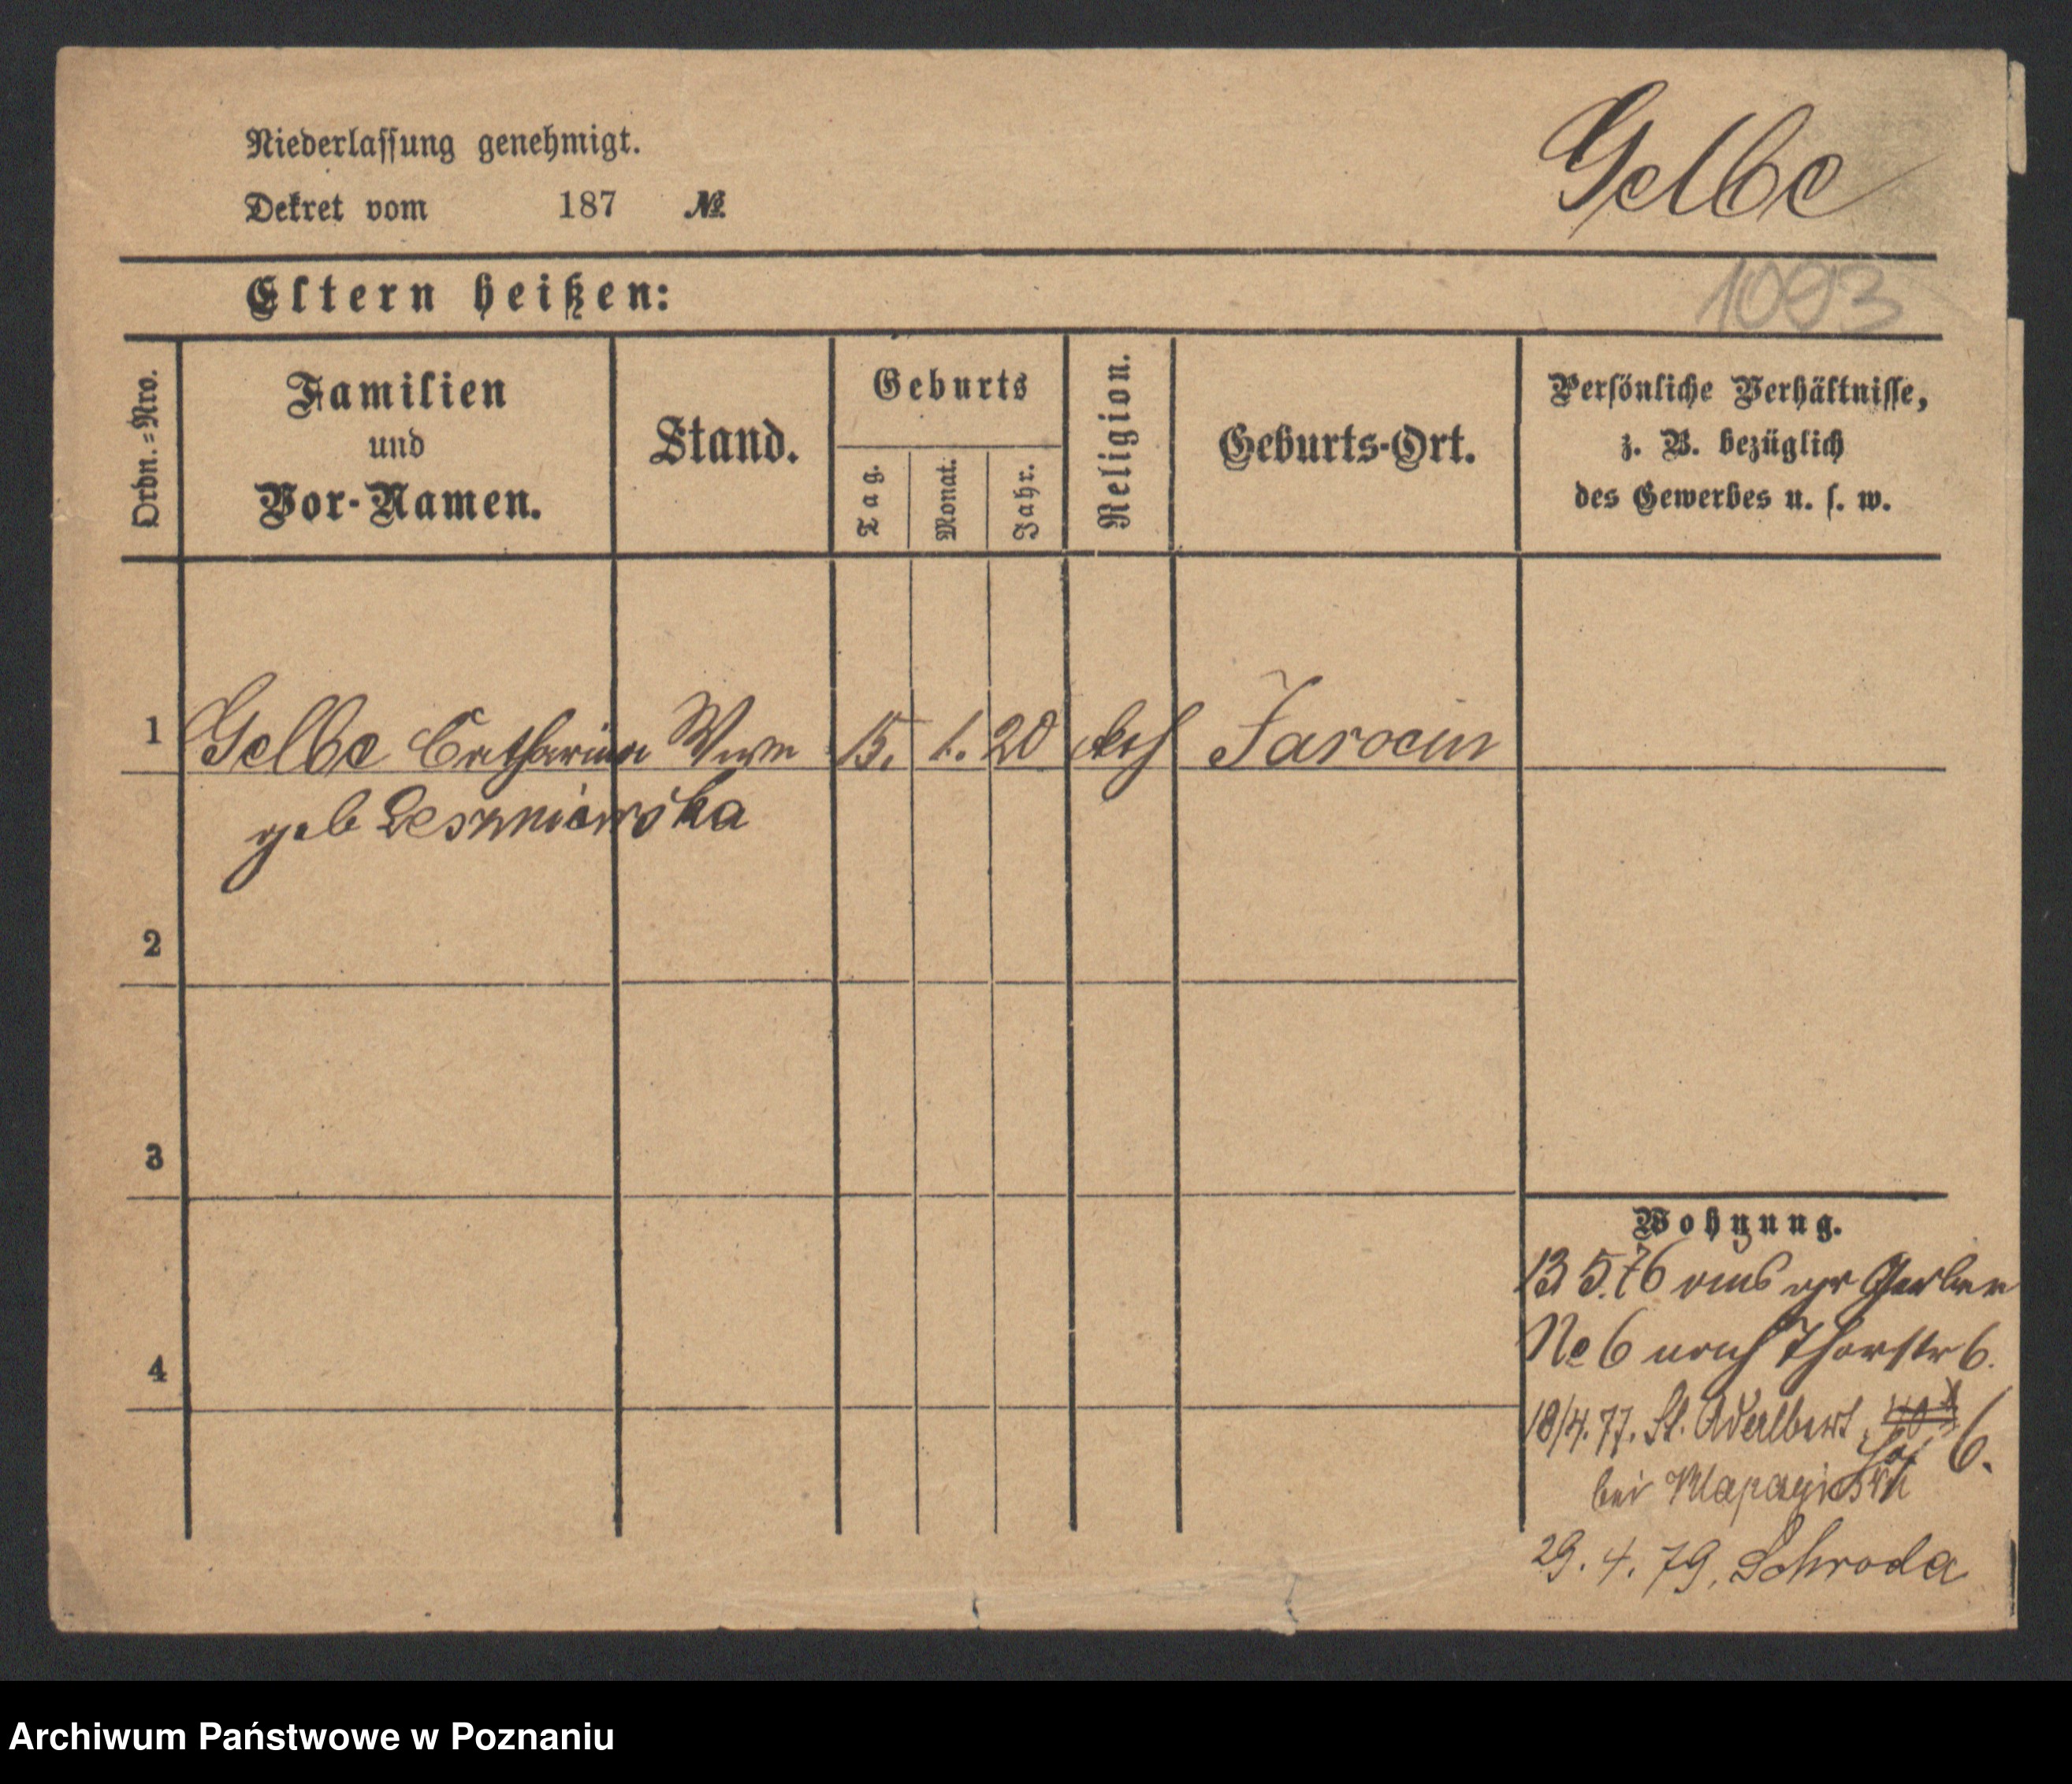 Niederlassung genehmigt.
Dekret vom 187 №
Gelbe
1093
Eltern heißen:
Ordn.=Nro.
Familien
und
Vor-Namen.
Stand.
Geburts
Tag.
Monat.
Jahr.
Religion.
Geburts-Ort.
Persönliche Verhältnisse,
z. B. bezüglich
des Gewerbes u. s. w.
1 Gelbe Catharina Wwe 15. 1. 20 kath Jarocin
geb Leszniewska
2
3
4
Wohnung.
13 5.76 aus gr Gerber
No 6 nach Thorstr 6.
18/4.77. St. Adalbert 6.
bei
29.4.79. Schroda
Archiwum Państwowe w Poznaniu